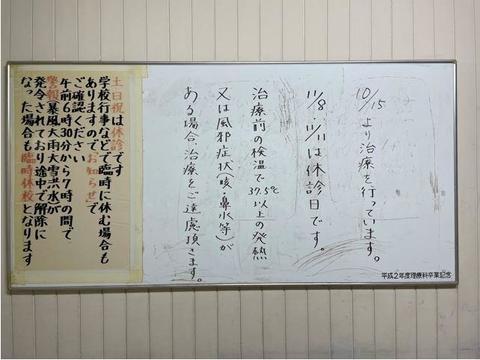 10/15 より治療を行っています。
11/8・11/11は休診日です。
治療前の検温で37.5℃以上の発熱
又は風邪症状(咳・鼻水等)が
ある場合、治療をご遠慮頂きます。
土日祝は休診です
学校行事などで臨時に休む場合も
ありますのでお知らせで
ご確認ください
午前6時30分から7時の間で
警報(暴風大雨大雪洪水)が
発令されており途中で解除に
なった場合も臨時休校となります
平成2年度理療科卒業記念